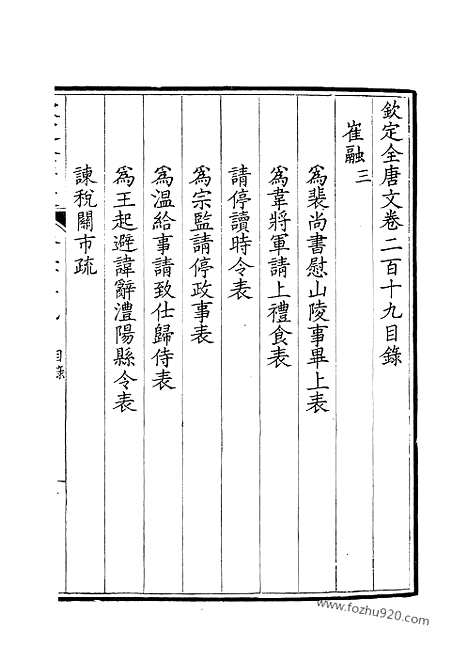 欽定全唐文卷二百十九目錄
崔融三
爲裴尚書慰山陵事畢上表
爲韋將軍請上禮食表
請停讀時令表
爲宗監請停政事表
爲溫給事請致仕歸侍表
爲王起避諱辭澧陽縣令表
諫稅關市疏
目錄
www.fozhu920.com